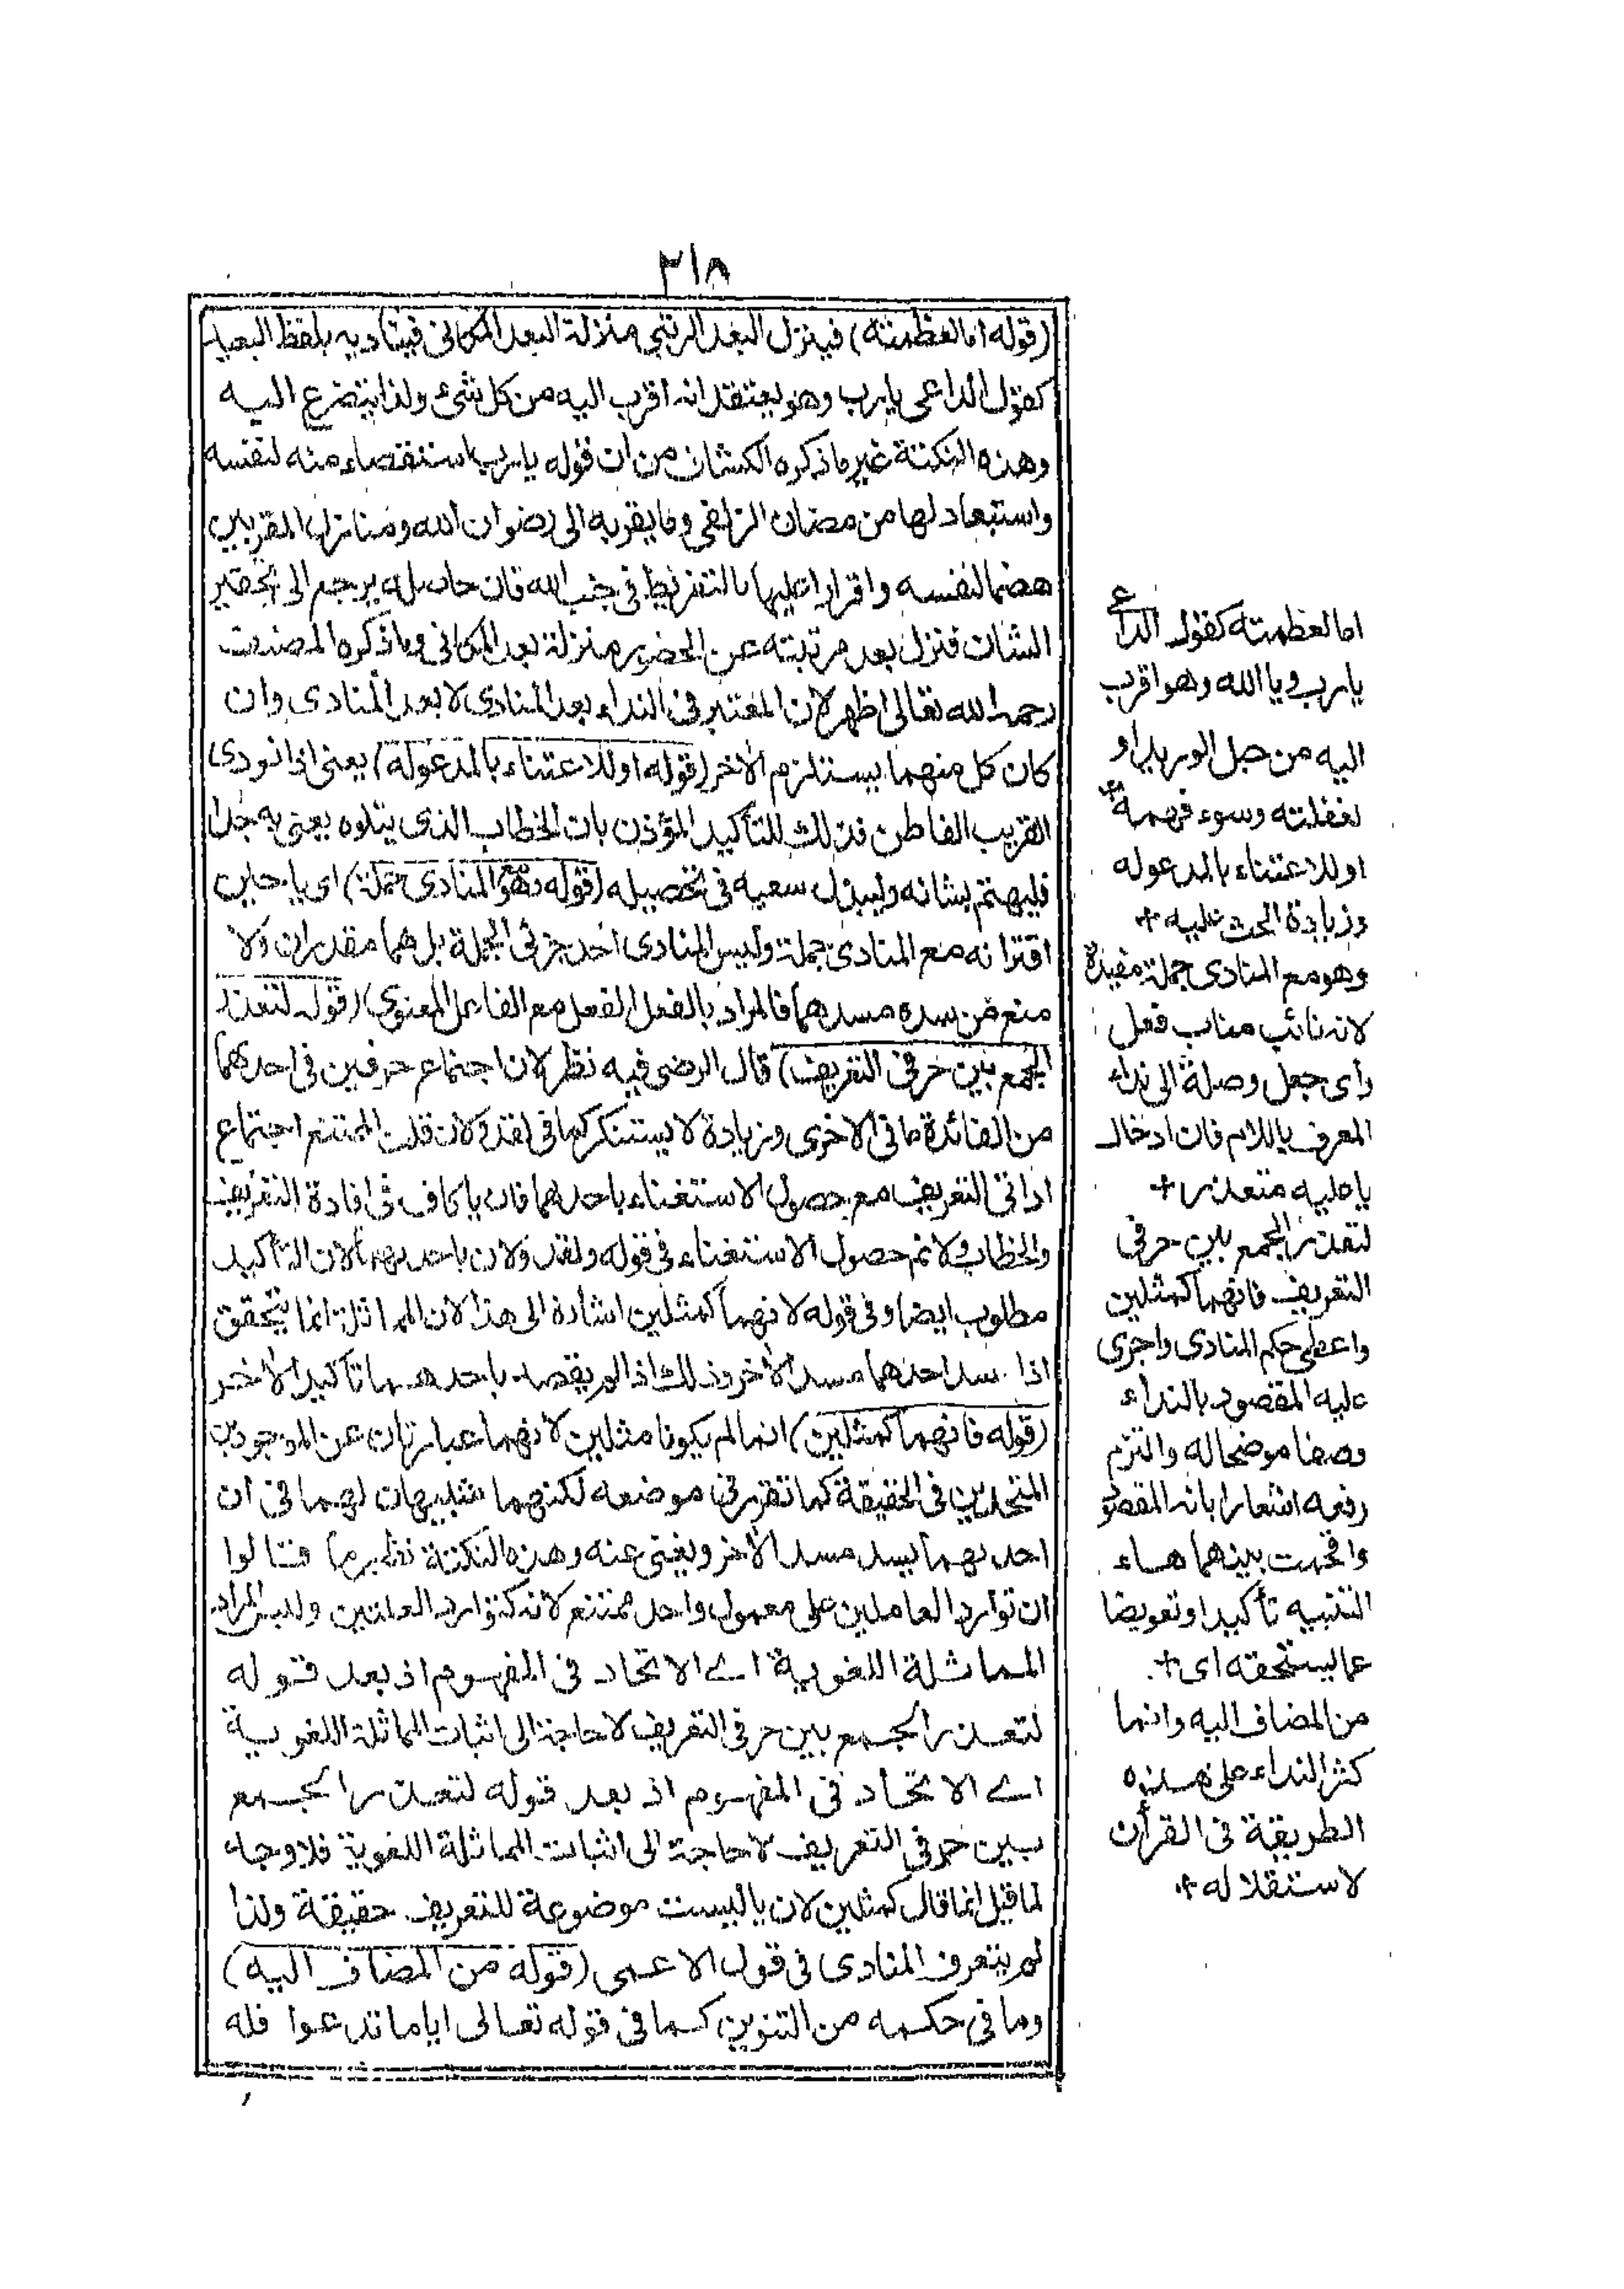 ٢١٨
(قوله اما لعظمته) فينزل البعد الرتبي منزلة البعد المكاني فيناديه بلفظ البعيد
كقول الداعي يا رب وهو يعتقد انه اقرب اليه من كل شئ ولذا يتضرع اليه
وهذه النكتة غير ما ذكره الكشاف من ان قوله يا رب استقصاء منه لنفسه
واستبعاد لها من مضان الزلفى وما يقربه الى رضوان الله ومنازل المقربين
هضما لنفسه واقرارا عليها بالتفريط في جنب الله فان حاصله يرجع الى تحقير
الشان فنزل بعد مرتبته عن الحضور منزلة بعد المكاني وما ذكره المصنف
رحمه الله تعالى اظهر لان المعتبر في النداء بعد المنادى لا بعد المنادى وان
كان كل منهما يستلزم الاخر (قوله او للاعتناء بالمدعوله) يعنى اذا نودى
القريب الفاطن فذلك للتأكيد المؤذن بان الخطاب الذى يتلوه يعنى به جدا
فليهتم بشانه وليبذل سعيه في تحصيله (قوله وهو مع المنادى جملة) اى يا حين
اقترانه مع المنادى جملة وليس المنادى احد جزئى الجملة بل هما مقدران ولا
منع من سده مسدهما فالمراد بالفعل الفعل مع الفاعل المعنوى (قوله لتعذر
الجمع بين حرفى التعريف) قال الرضى فيه نظر لان اجتماع حرفين في احدهما
من الفائدة ما في الاخرى وزيادة لا يستنكر كما في لقد ولان قلت الممتنع اجتماع
اداتى التعريف مع حصول الاستغناء باحدهما فان يا كاف فى افادة التعريف
والخطاب ولا نم حصول الاستغناء في قوله ولقد ولان باحديهما لان التأكيد
مطلوب ايضا وفي قوله لانهما كمثلين اشارة الى هذا لان المماثلة انما يتحقق
اذا سد احدهما مسد الاخر وذلك اذا لم يقصد باحدهما تاكيد الاخر
(قوله فانهما كمثلين) انما لم يكونا مثلين لانهما عبارتان عن الموجودين
المتحدين في الحقيقة كما تقرر في موضعه لكنهما شبيهان لهما في ان
احديهما يسد مسد الاخر ويغنى عنه وهذه النكتة نظير ما قالوا
ان توارد العاملين على معمول واحد ممتنع لانه كتوارد العلتين وليس المراد
المماثلة اللغوية اے الاتحاد في المفهوم اذ بعد قوله
لتعذر الجمع بين حرفى التعريف لا حاجة الى اثبات المماثلة اللغوية
اے الاتحاد في المفهوم اذ بعد قوله لتعذر الجمع
بين حرفي التعريف لا حاجة الى اثبات المماثلة اللغوية فلا وجه
لما قيل انما قال كمثلين لان يا ليست موضوعة للتعريف حقيقة ولذا
لم يتعرف المنادى في قول الاعمى (قوله من المضاف اليه)
وما في حكمه من التنوين كما في قوله تعالى اياما تدعوا فله
اما لعظمته كقول الداعي
يا رب ويا الله وهو اقرب
اليه من حبل الوريد او
لغفلته وسوء فهمه
او للاعتناء بالمدعوله
وزيادة الحث عليه +
وهو مع المنادى جملة مفيدة
لانه نائب مناب فعل
واى جعل وصلة الى نداء
المعرف باللام فان ادخال
يا عليه متعذر +
لتعذر الجمع بين حرفى
التعريف فانهما كمثلين
واعطى حكم المنادى واجرى
عليه المقصود بالنداء
وصفا موضحا له والتزم
رفعه اشعارا بانه المقصود
واقحمت بينهما هاء
التنبيه تأكيدا وتعويضا
عما يستحقه اى +
من المضاف اليه وانما
كثر النداء على هذه
الطريقة في القرأن
لاستقلاله +